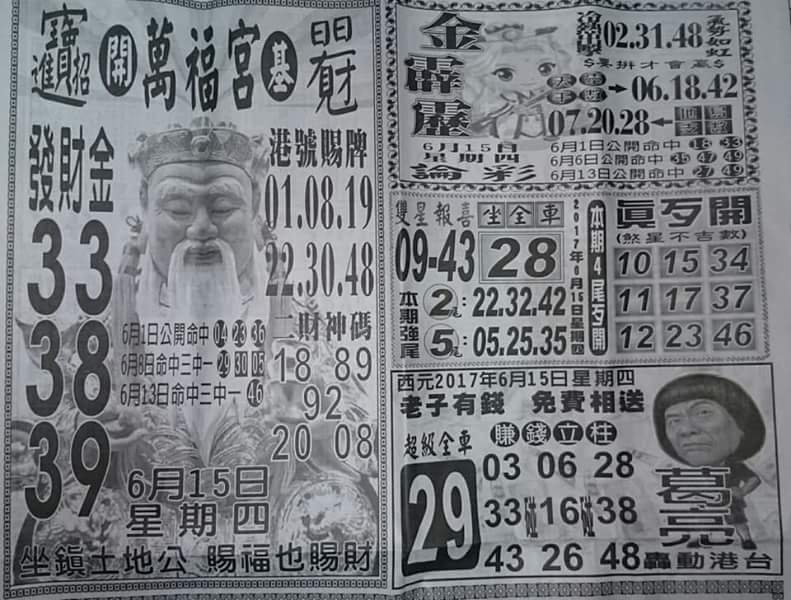 招財進寶 開 萬福宮 基
發財金
33
38
39
港號賜牌
01.08.19
22.30.48
二財神碼
18 89
92
20 08
6月1日公開命中 04 23 36
6月8日命中三中一 29 30 05
6月13日命中三中一 46
6月15日
星期四
坐鎮土地公 賜福也賜財
金霹靂
02.31.48
氣勢如虹
$要拼才會贏$
06.18.42
07.20.28
6月15日
星期四
論彩
6月1日公開命中 18 33
6月6日公開命中 35 47 49
6月13日公開命中 27 49
雙星報喜 坐全車
09-43 28
本期強尾
2尾:22.32.42
5尾:05.25.35
2017年6月15日星期四
本期4尾歹開
真歹開
(煞星不吉數)
10 15 34
11 17 37
12 23 46
西元2017年6月15日星期四
老子有錢 免費相送
超級全車
29
賺錢立柱
03 06 28
33碰16碰38
43 26 48
葛亮
轟動港台